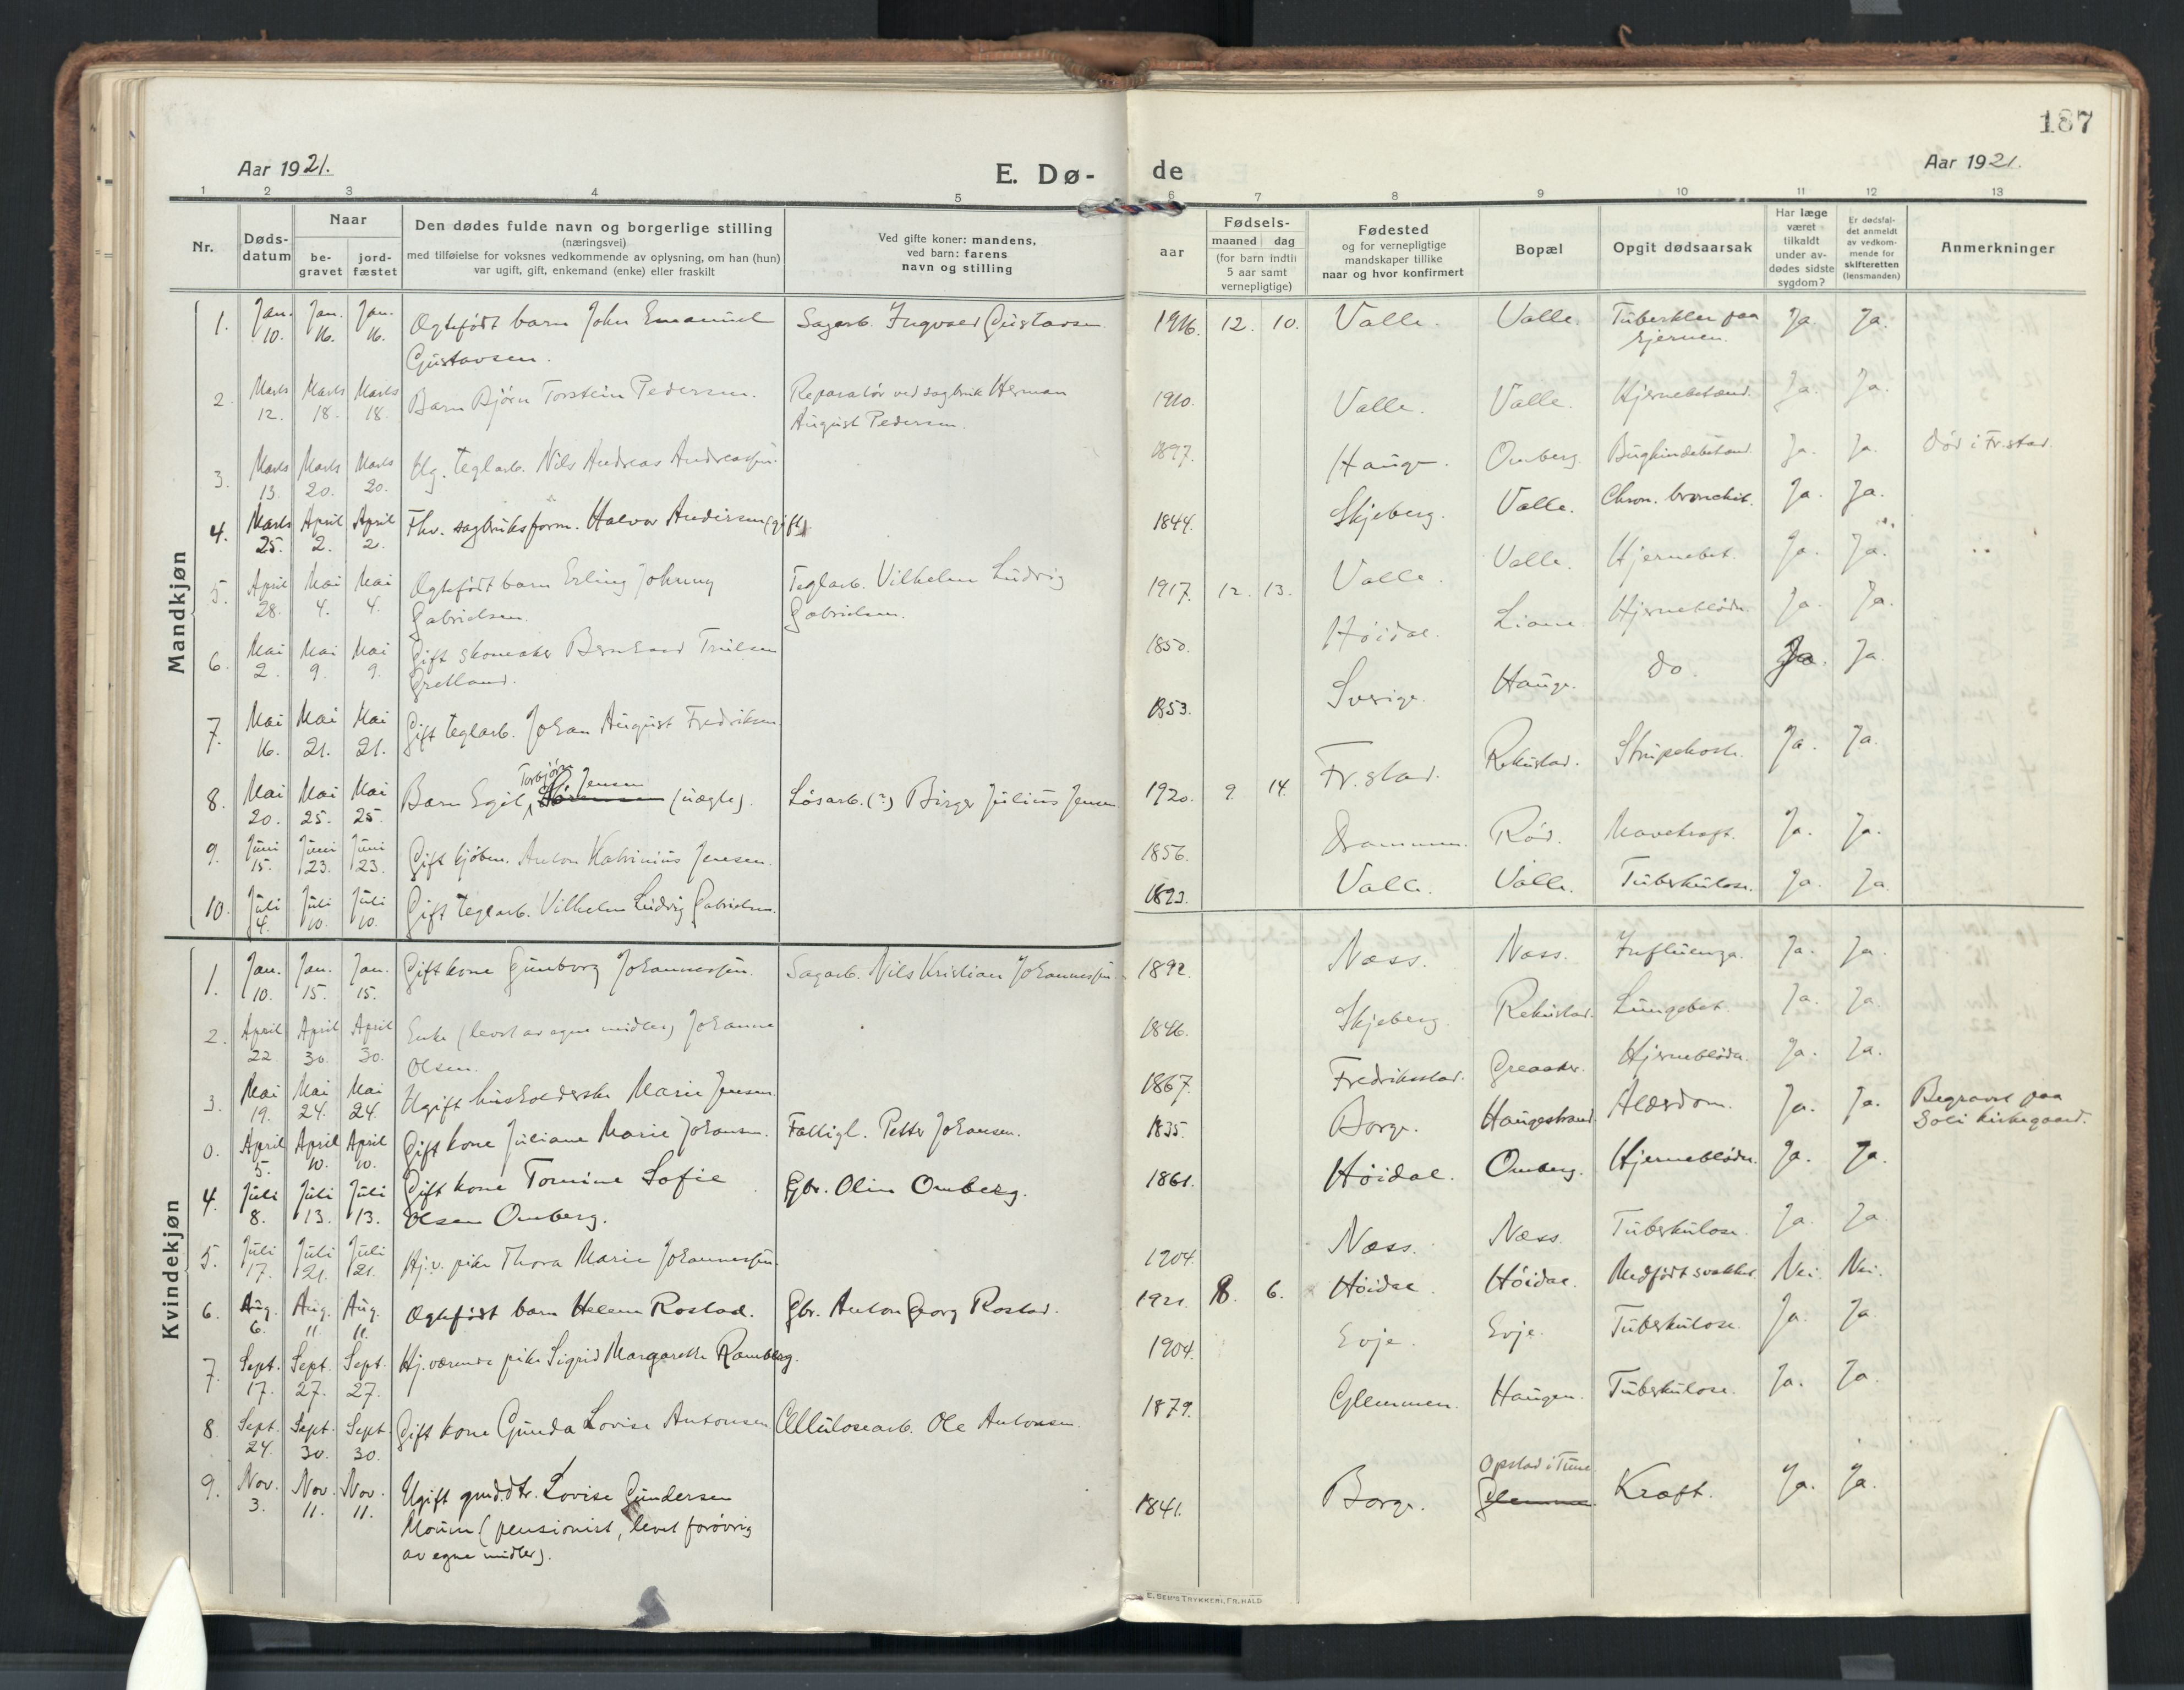 187
Aar 1921. E. Dø- de Aar 1921.
1 2 3 4 5 6 7 8 9 10 11 12 13
Nr.
Døds-
datum
Naar
be-
gravet
jord-
fæstet
Den dødes fulde navn og borgerlige stilling
(næringsvei)
med tilføielse for voksnes vedkommende av oplysning, om han (hun)
var ugift, gift, enkemand (enke) eller fraskilt
Ved gifte koner: mandens,
ved barn: farens
navn og stilling
Fødsels-
aar
maaned dag
(for barn indtil
5 aar samt
vernepligtige)
Fødested
og for vernepligtige
mandskaper tillike
naar og hvor konfirmert
Bopæl
Opgit dødsaarsak
Har læge
været
tilkaldt
under av-
dødes sidste
sygdom?
Er dødsfal-
det anmeldt
av vedkom-
mende for
skifteretten
(lensmanden)
Anmerkninger
Mandkjøn
1. Jan. 10. Jan. 16. Jan. 16. Ogtefødt barn John Emanuel Sagarb. Ingvald Gustavsen 1916. 12. 10. Valle. Valle. Tuberkler paa Ja. Ja.
Gustavsen. hjernen.
2. Marts 12. Marts 18. Marts 18. Barn Bjørn Torstein Pedersen. Reparatør ved sagbruk Herman 1910. Valle. Valle. Hjernebetænd. Ja. Ja.
August Pedersen.
3. Marts 13. Marts 20. Marts 20. Ug. teglarb. Nils Andreas Andreassen. 1897. Hauge. Omberg. Bughindebetænd. Ja. Ja. Død i Fr.stad.
4. Marts 25. April 2. April 2. Fhv. sagbruksform. Halvor Andersen (gift) 1844. Skjeberg. Valle. Chron. bronchit. Ja. Ja.
5. April 28. Mai 4. Mai 4. Ogtefødt barn Erling Johnny Teglarb. Vilhelm Ludvig 1917. 12. 13. Valle. Valle. Hjernebet. Ja. Ja.
Gabrielsen. Gabrielsen.
6. Mai 2. Mai 9. Mai 9. Gift skomaker Bernhard Trulsen 1850. Høidal. Liane. Hjerneblødn. Ja. Ja.
Gretland.
7. Mai 16. Mai 21. Mai 21. Gift teglarb. Johan August Fredriksen 1853. Sverige. Hauge. do. Ja. Ja.
8. Mai 20. Mai 25. Mai 25. Barn Egil Torbjørn Jensen (uægte). Løsarb. (?) Birger Julius Jensen 1920. 9. 14. Fr.stad. Rekustad. Strupehoste. Ja. Ja.
9. Juni 15. Juni 23. Juni 23. Gift kjøbm. Anton Katrinius Jensen. 1856. Drammen. Rød. Mavekræft. Ja. Ja.
10. Juli 4. Juli 10. Juli 10. Gift teglarb. Vilhelm Ludvig Gabrielsen. 1893. Valle. Valle. Tuberkulose. Ja. Ja.
Kvindekjøn
1. Jan. 10. Jan. 15. Jan. 15. Gift kone Gunborg Johannessen. Sagarb. Nils Kristian Johannessen. 1892. Næss. Næss. Influenza. Ja. Ja.
2. April 22. April 30. April 30. Enke (levet av egne midler) Johanne 1846. Skjeberg. Rekustad. Lungebet. Ja. Ja.
Olsen.
3. Mai 19. Mai 24. Mai 24. Ugift husholderske Marie Jensen 1867. Fredriksstad. Greaaker. Hjerneblødn. Ja. Ja.
0. April 5. April 10. April 10. Gift kone Juliane Marie Johansen. Fattigl. Petter Johansen. 1835. Borge. Haugestrand. Alderdom. Ja. Ja. Begravet paa
Soli kirkegaard.
4. Juli 8. Juli 13. Juli 13. Gift kone Tomine Sofie Gbr. Olin Omberg. 1861. Høidal. Omberg. Hjerneblødn. Ja. Ja.
Olsen Omberg.
5. Juli 17. Juli 21. Juli 21. Hj.v. pike Thora Marie Johannessen. 1904. Næss. Næss. Tuberkulose. Ja. Ja
6. Aug. 6. Aug. 11. Aug. 11. Ogtefødt barn Helene Rostad. Gbr. Anton Georg Rostad. 1921. 8. 6. Høidal. Høidal. Medfødt svakhet. Nei. Nei.
7. Sept. 17. Sept. 27. Sept. 27. Hj. værende pike Sigrid Margarethe Ramberg. 1904. Evje. Evje. Tuberkulose. Ja. Ja
8. Sept. 24. Sept. 30. Sept. 30. Gift kone Gunda Lovise Antonsen Cellulosearb. Ole Antonsen. 1879. Glemmen. Haugen. Tuberkulose. Ja. Ja.
Opstad i Tune
9. Nov. 3. Nov. 11. Nov. 11. Ugift gmd.dtr. Lovise Gundersen 1841. Borge. Glemmen. Kræft. Ja. Ja.
Moum (pensionist, levet forøvrig
av egne midler).
E. SEM'S TRYKKERI, FR.HALD